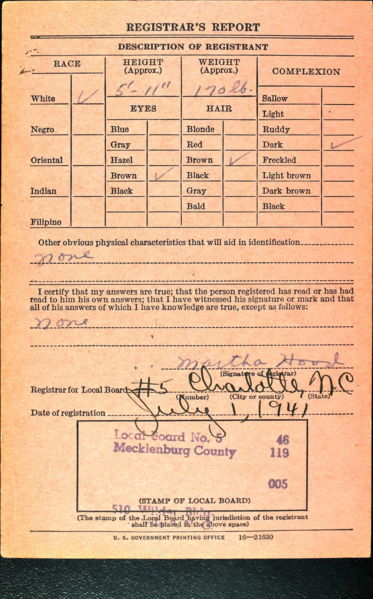 REGISTRAR'S REPORT
DESCRIPTION OF REGISTRANT
RACE
HEIGHT (Approx.)
WEIGHT (Approx.)
COMPLEXION
5'-11"
170 lb.
White
Sallow
EYES
HAIR
Light
Negro
Blue
Blonde
Ruddy
Gray
Red
Dark
Oriental
Hazel
Brown
Freckled
Brown
Black
Light brown
Indian
Black
Gray
Dark brown
Bald
Black
Filipino
Other obvious physical characteristics that will aid in identification
none
I certify that my answers are true; that the person registered has read or has had
read to him his own answers; that I have witnessed his signature or mark and that
all of his answers of which I have knowledge are true, except as follows:
none
Martha Hood
(Signature of Registrar)
Registrar for Local Board #5 Charlotte, N C
(Number) (City or county) (State)
Date of registration July 1, 1941
Local Board No. 5 46
Mecklenburg County 119
005
(STAMP OF LOCAL BOARD)
510 Wilder Bldg
(The stamp of the Local Board having jurisdiction of the registrant
shall be placed in the above space)
U. S. GOVERNMENT PRINTING OFFICE 16—21630